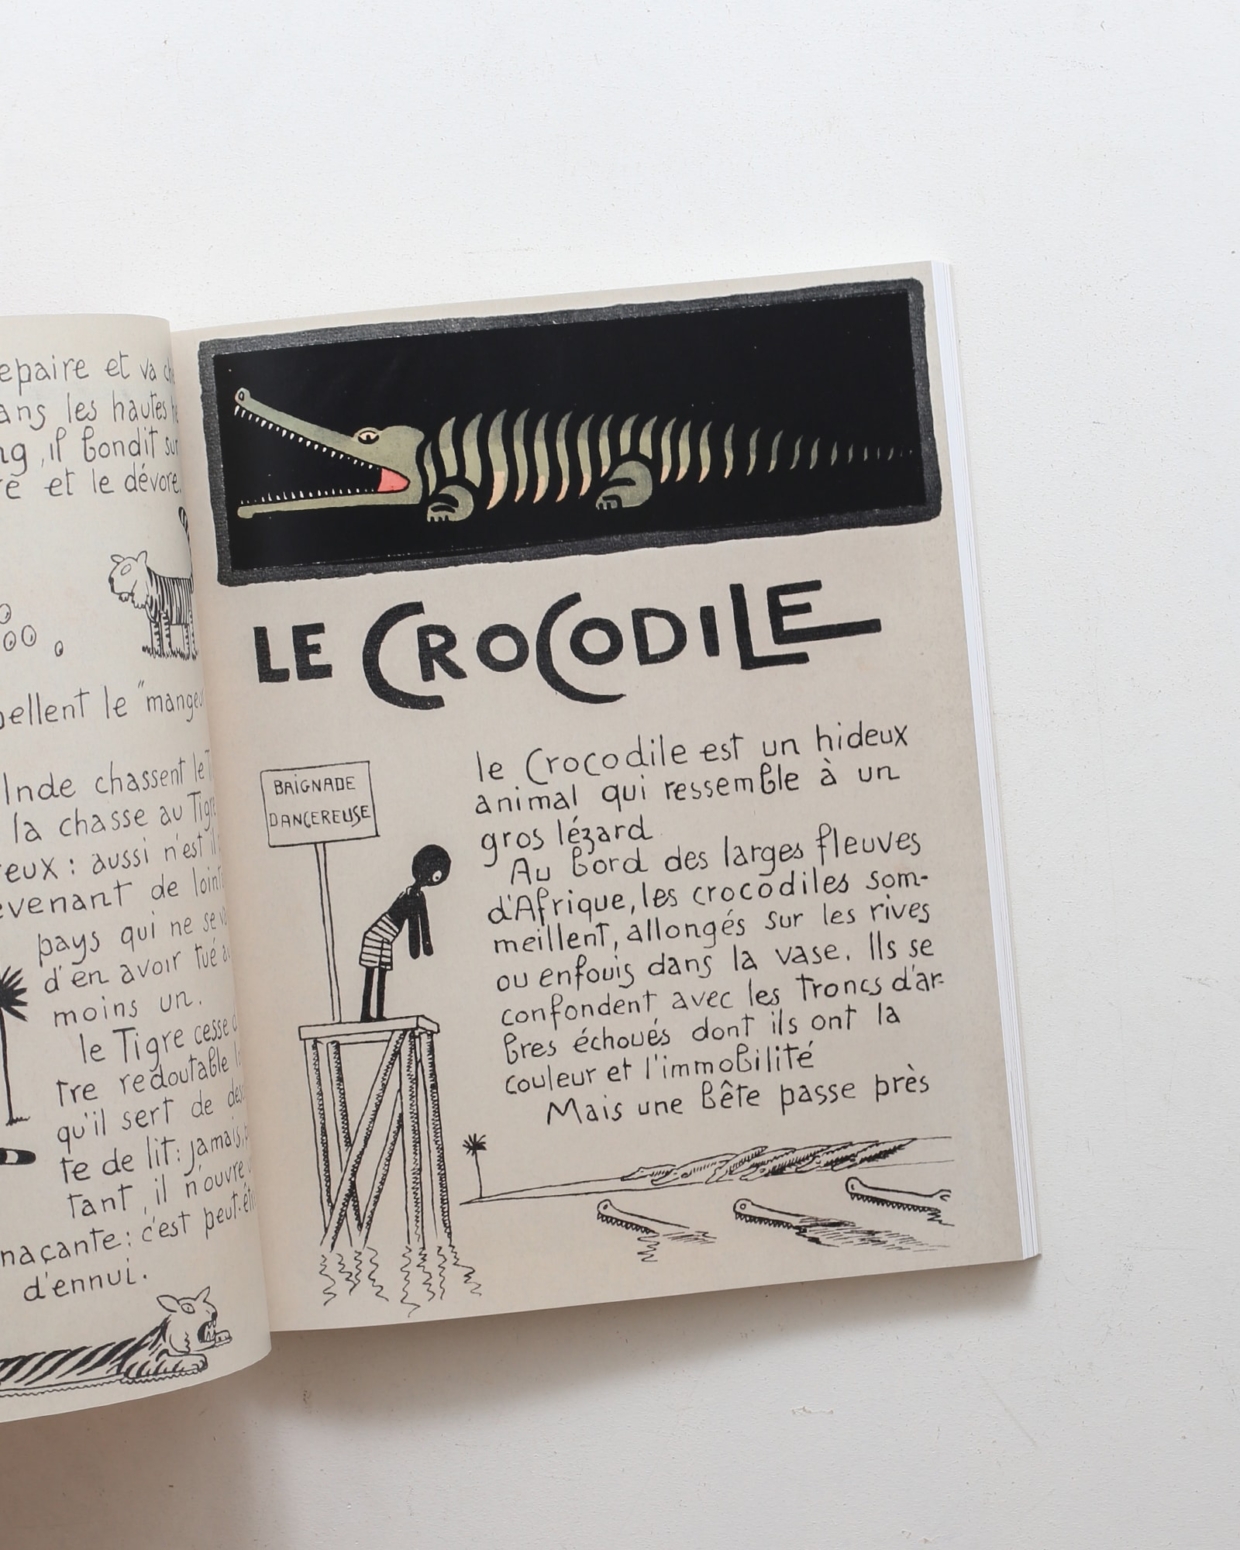 epaire et va
ans les hautes
ng, il bondit sur
re et le dévore.
pellent le "mange
Inde chassent le
la chasse au Tigre
reux : aussi n'est il
evenant de loin
pays qui ne se
d'en avoir tué au
moins un.
le Tigre cesse
tre redoutable
qu'il sert de des
te de lit : jamais,
tant, il n'ouvre
naçante : c'est peut-êt
d'ennui.
LE CROCODILE
BAIGNADE
DANGEREUSE
le Crocodile est un hideux
animal qui ressemble à un
gros lézard
Au bord des larges fleuves
d'Afrique, les crocodiles som-
meillent, allongés sur les rives
ou enfouis dans la vase. Ils se
confondent avec les troncs d'ar-
bres échoués dont ils ont la
couleur et l'immobilité
Mais une bête passe près